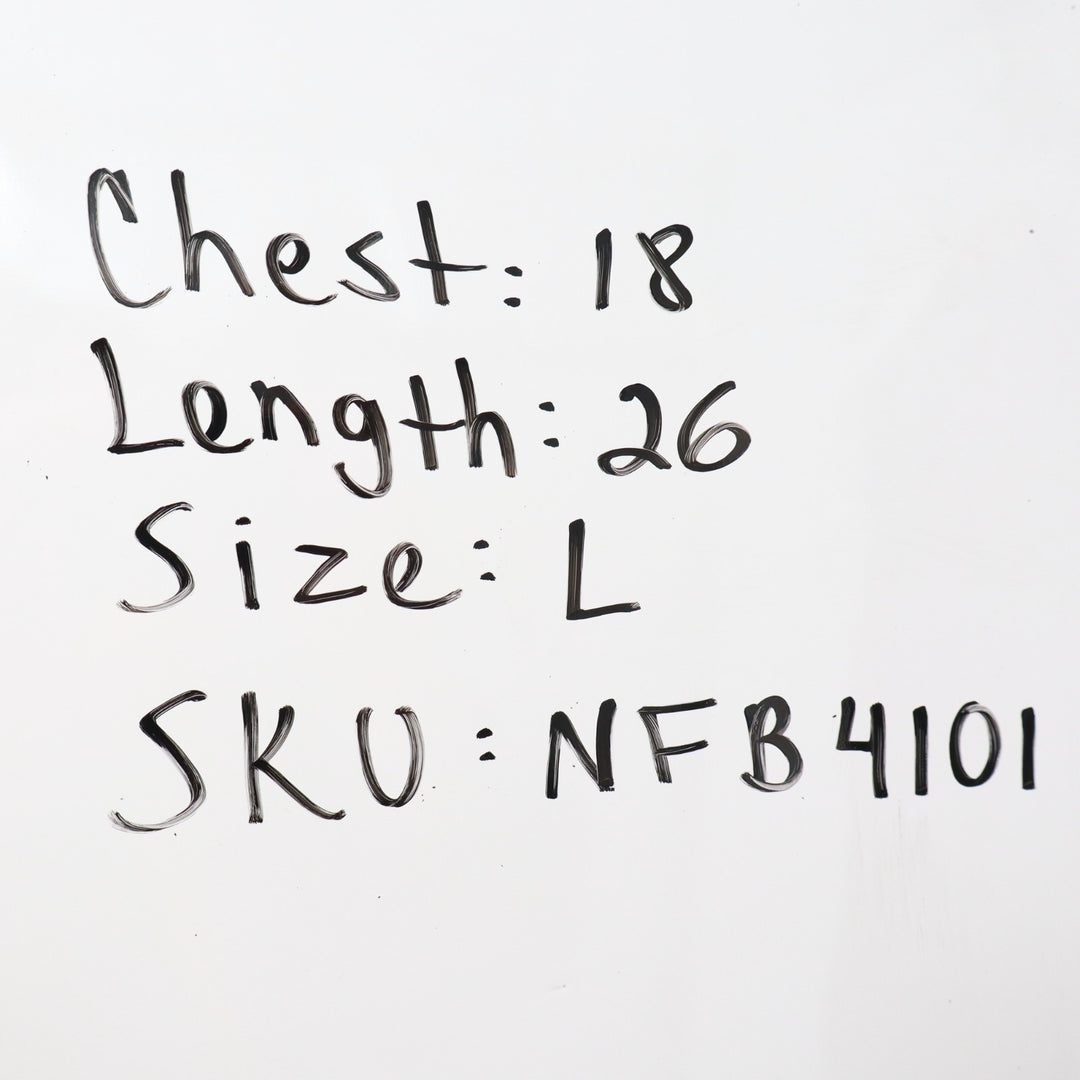 Chest: 18
Length: 26
Size: L
SKU: NFB4101